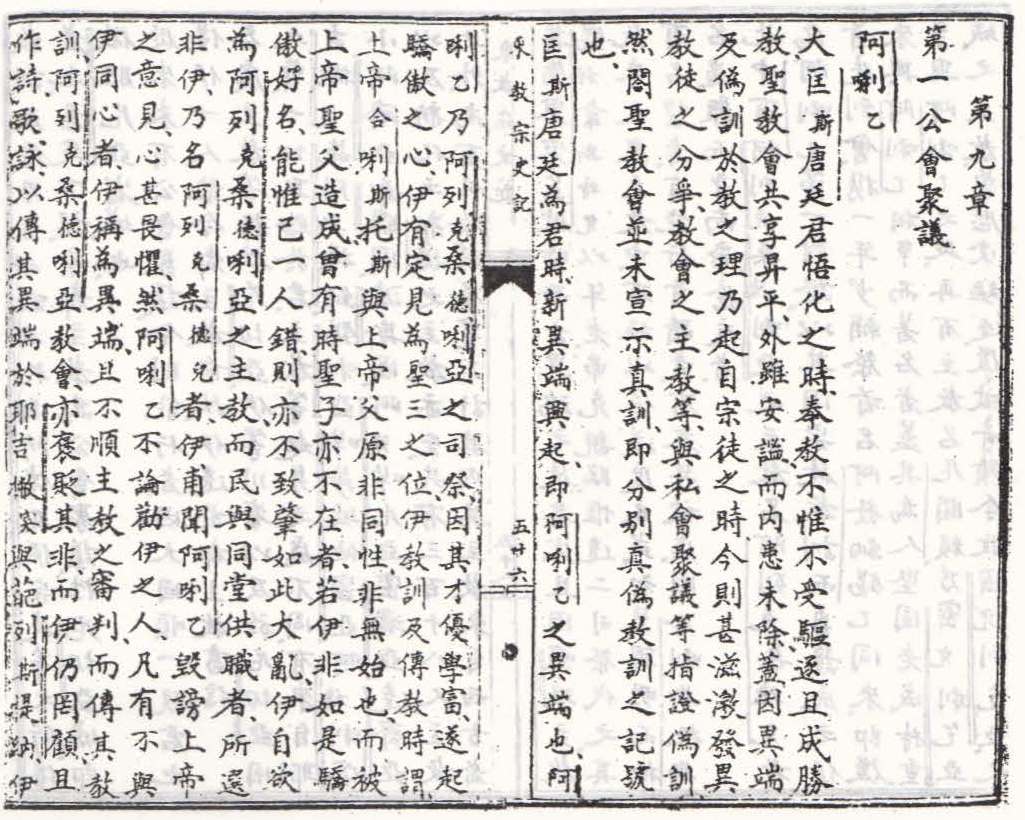 第九章
第一公會聚議
阿唎乙
大匡斯唐廷君悟化之時、奉教不惟不受驅逐且成勝
教聖教會共享昇平、外雖安謐而內患未除、蓋因異端
及偽訓於教之理乃起自宗徒之時今則甚滋漫發異
教徒之分爭、教會之主教等、與私會聚議等指證偽訓、
然閤聖教會並未宣示真訓、即分別真偽教訓之記號
也、
匡斯唐廷為君時、新異端興起、即阿唎乙之異端也、阿
東教宗史記
五廿六
唎乙乃阿列克桑德唎亞之司祭、因其才優學富、遂起
驕傲之心、伊有定見為聖三之位、伊教訓及傳教時謂、
上帝合唎斯托斯與上帝父原非同性、非無始也而被
上帝聖父造成、曾有時聖子亦不在者、若伊非如是驕
傲好名、能惟己一人錯、則亦不致肇始此大亂、伊自欲
為阿列克桑德唎亞之主教而民與同堂供職者所選
非伊乃名阿列克桑德兒者、伊甫聞阿唎乙毀謗上帝
之意見、心甚畏懼、然阿唎乙不論勸伊之人、凡有不與
伊同心者伊稱為異端、且不順主教之審判、而傳其教
訓、阿列克桑德唎亞教會、亦褒貶其非、而伊仍罔顧、且
作詩歌、詠傳其異端於耶吉撇突與葩列斯提納、伊